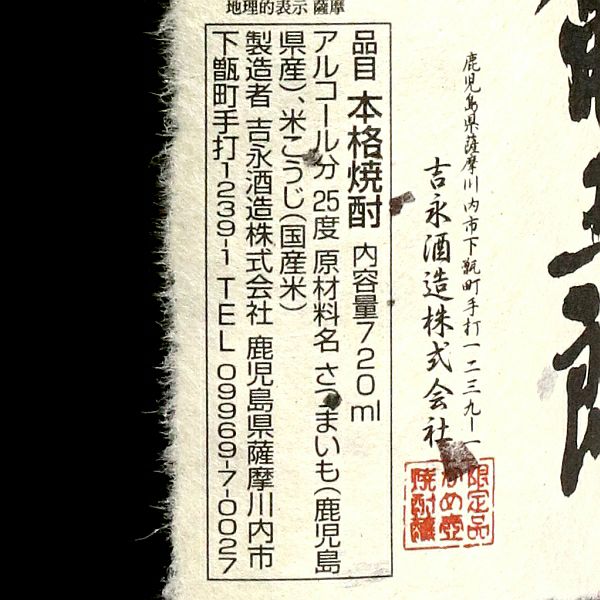 地理的表示 薩摩
品目 本格焼酎 内容量720ml
アルコール分 25度 原材料名 さつまいも(鹿児島
県産)、米こうじ(国産米)
製造者 吉永酒造株式会社 鹿児島県薩摩川内市
下甑町手打1239-1 TEL 09969-7-0027
鹿児島県薩摩川内市下甑町手打一二三九ー一
吉永酒造株式会社
限定品
かめ壺
焼酎醸